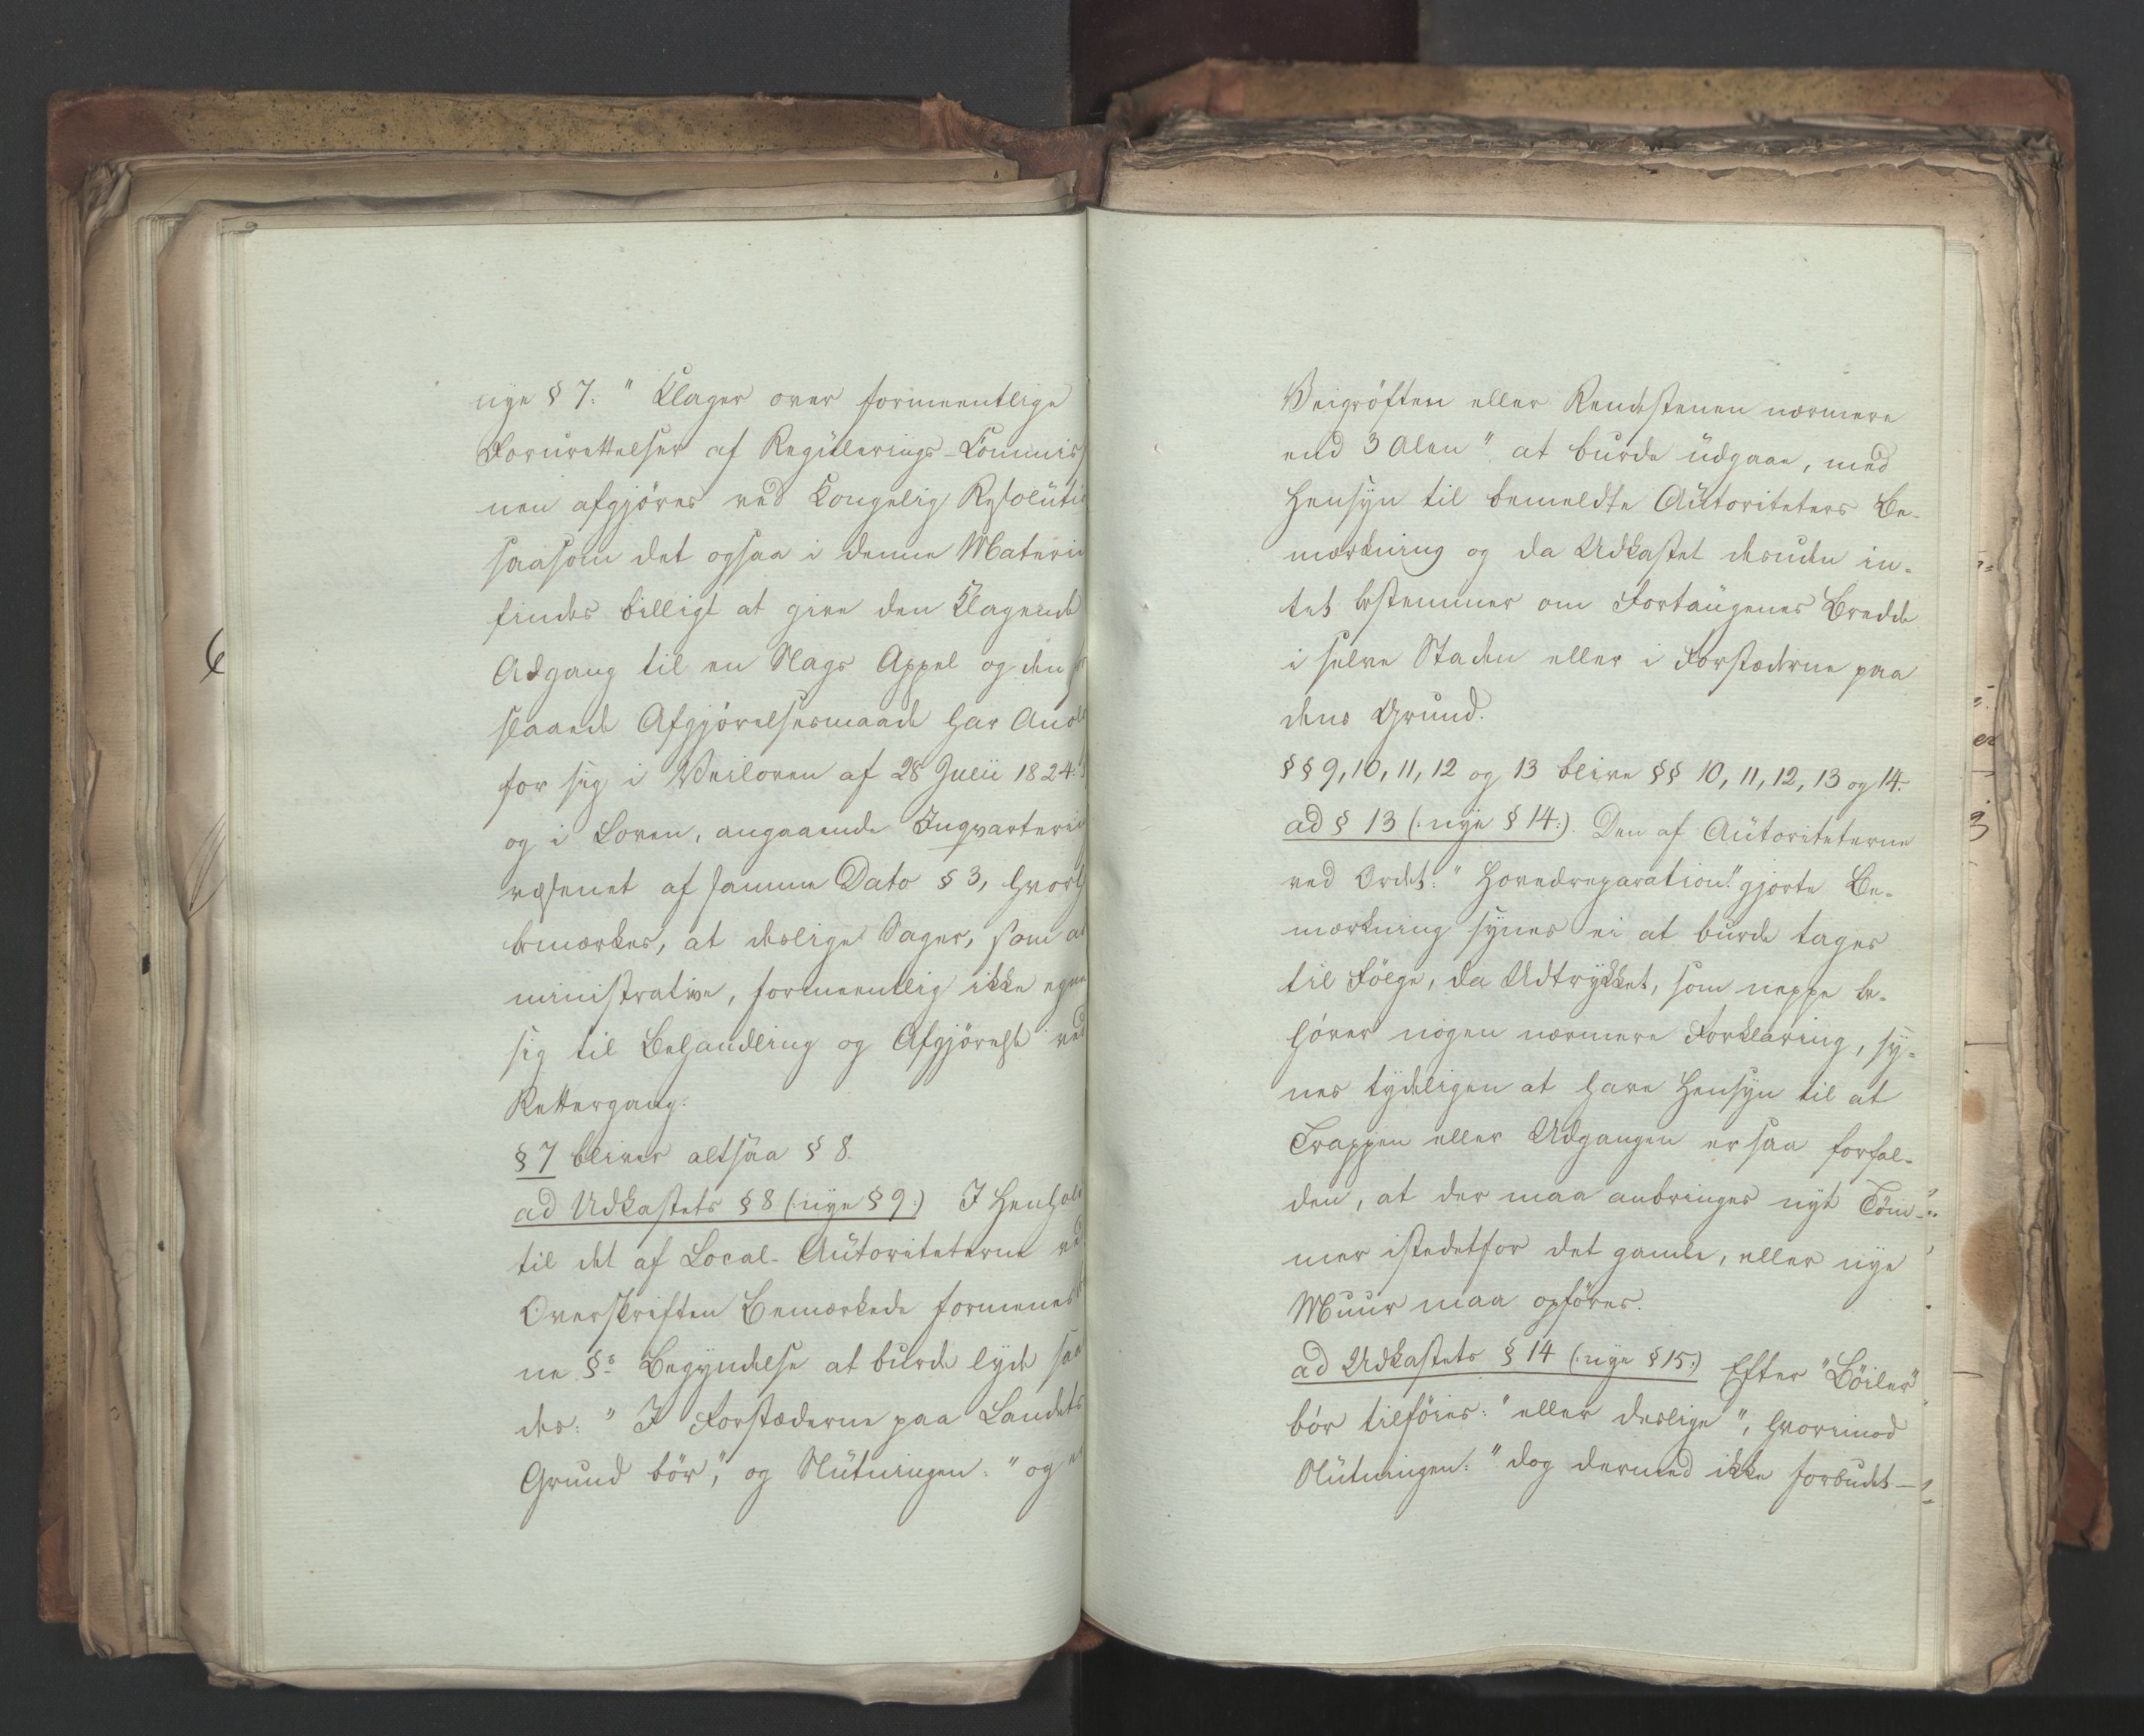 nye § 7: "Klager over formeentlige
Forurettelser af Regülerings-Commis
nen afgjöres ved Kongelig Resolüti
saasom det ogsaa i denne Materie
findes billigt at give den Klagende
Adgang til en Slags Appel og den
slaaede Afgjörelsesmaade har Anal
for sig i Veiloven af 28 Julii 1824.
og i Loven, angaaende Inqvarterin
væsenet af samme Dato § 3, hvorh
bemærkes, at deslige Sager, som ad
ministrative, formeentlig ikke egne
sig til Behandling og Afgjörelse ved
Rettergang.
§ 7 bliver altsaa § 8.
ad Udkastets § 8 (: nye § 9:) I Henhold
til det af Local-Aütoriteterne ved
Overskriften Bemærkede formenes
ne §s Begyndelse at burde lyde saa
des: "I Forstæderne paa Landets
Grund bör", og Slütningen: "og ei
Veigröften eller Rendestenen nærmere
end 3 Alen" at burde üdgaae, med
Hensyn til bemeldte Aütoriteters Be-
mærkning og da Udkastet desuden in-
tet bestemmer om Fortaügenes Bredde
i selve Staden eller i Forstæderne paa
dens Grund.
§§ 9, 10, 11, 12 og 13 blive §§ 10, 11, 12, 13 og 14.
ad § 13 (: nye § 14:). Den af Aütoriteterne
ved Ordet: "Hovedreparation" gjorte Be-
mærkning synes ei at burde tages
til Fölge, da Udtrykket, som neppe be-
höver nogen nærmere Forklaring, sy-
nes tydeligen at have Hensyn til at
Trappen eller Udgangen er saa forfal-
den, at der maa anbringes nyt Töm-
mer istedetfor det gamle, eller nye
Muur maa opföres.
ad Udkastets § 14 (: nye § 15:) Efter "Böiler"
bör tilföies: "eller deslige", hvorimod
Slütningen: "dog dermed ikke forbudet—